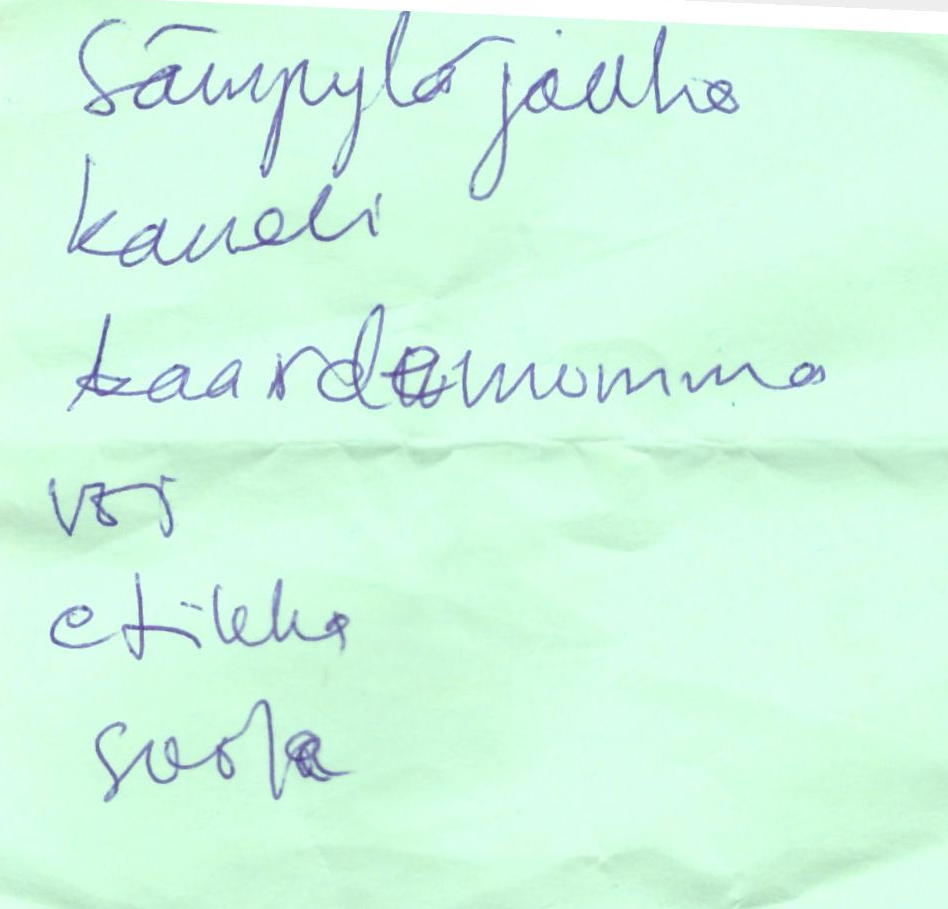 Sämpyläjauho
kaneli
kaardemomma
voi
etikka
suola